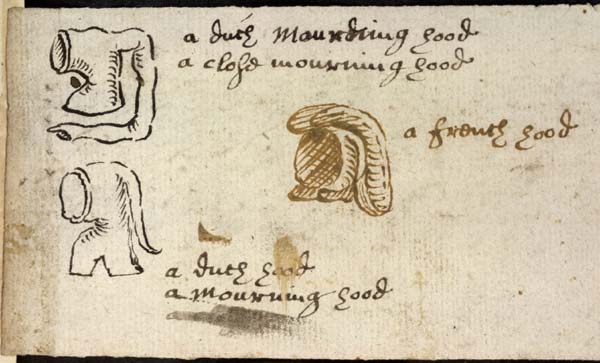 a duch Mourding hood
a close mourning hood
a french hood
a duch hood
a mourning hood